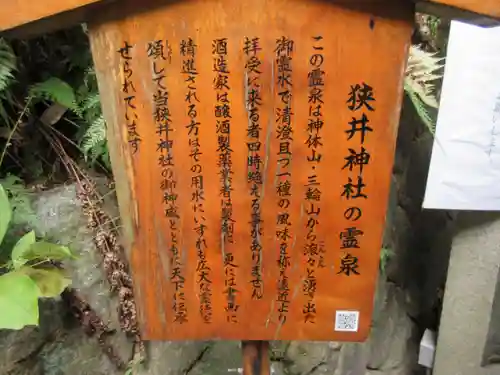 狭井神社の霊泉
この霊泉は神体山・三輪山から滾々と湧き出た
御霊水で清澄且つ一種の風味を称え遠近より
拝受に来る者四時絶える事がありません
酒造家は醸酒製薬業者は製剤に 更には書画に
精進される方はその用水にいずれも広大な霊徳を
頌して当狭井神社の御神威とともに天下に伝承
せられています